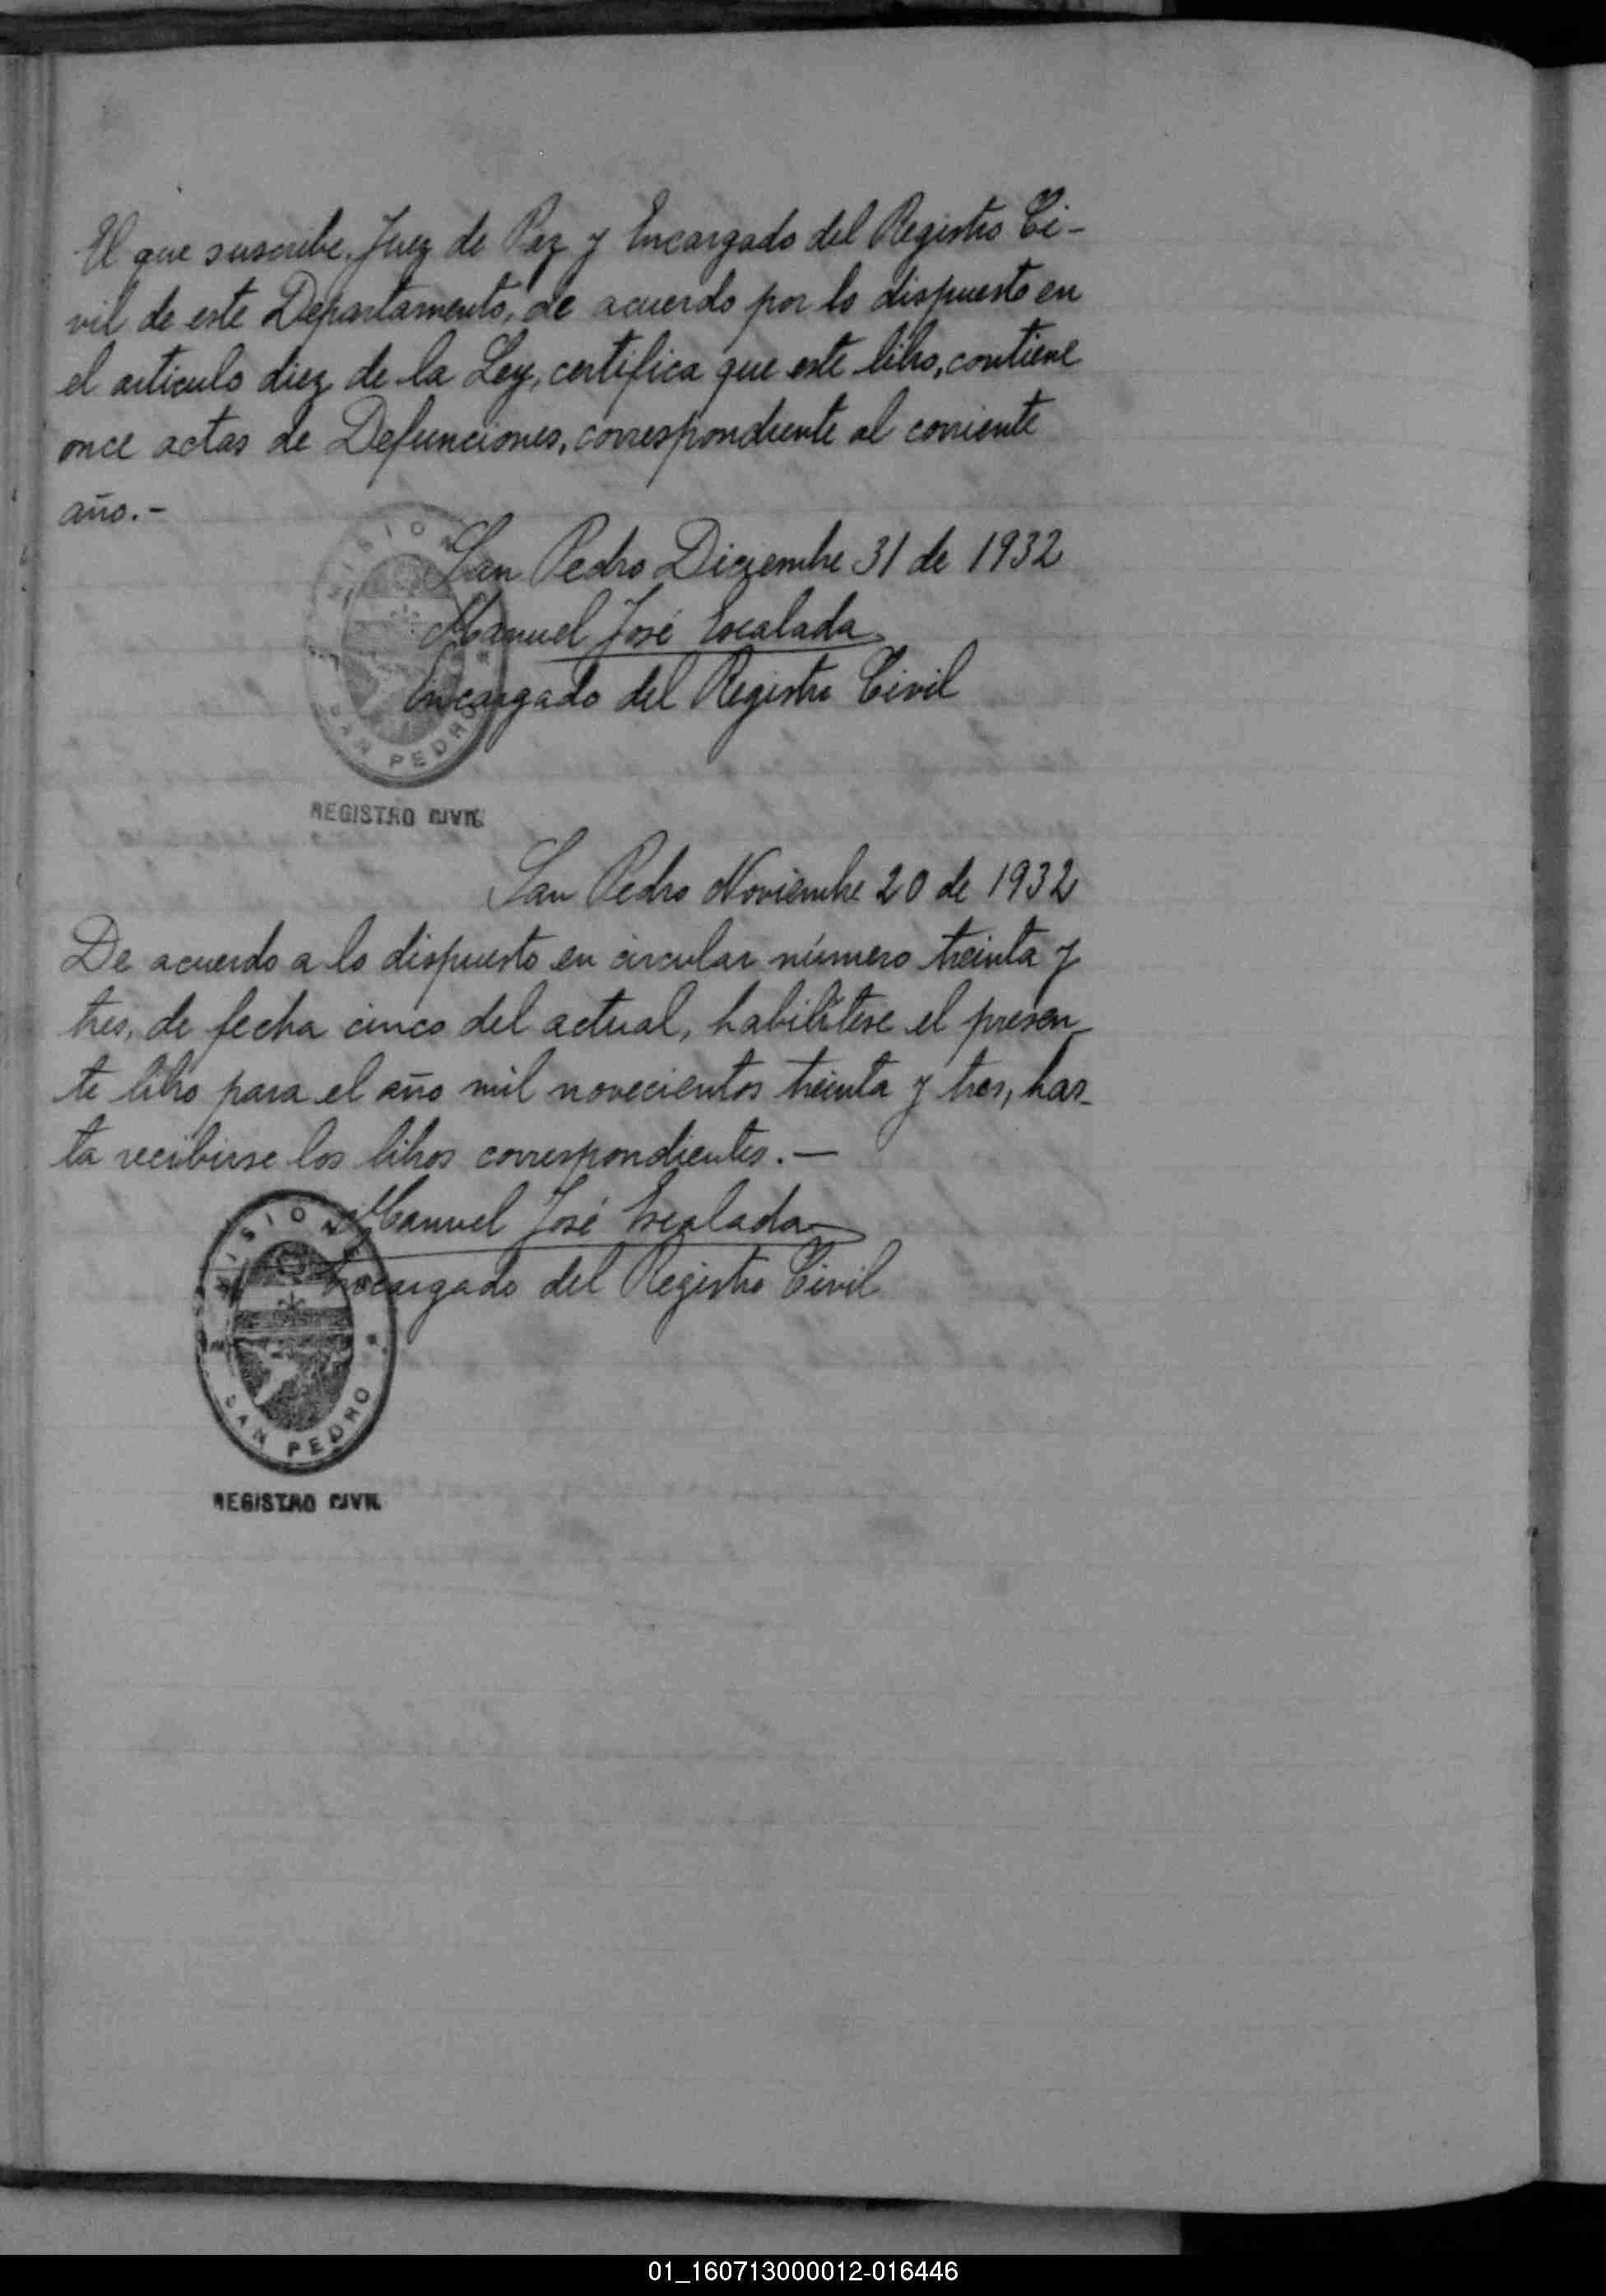 El que suscribe, Juez de Paz y Encargado del Registro Ci-
vil de este Departamento, de acuerdo por lo dispuesto en
el articulo diez de la Ley, certifica que este libro, contiene
once actas de Defunciones, correspondiente al corriente
año.-
San Pedro Diciembre 31 de 1932
Manuel José Escalada
Encargado del Registro Civil
MISIONES
SAN PEDRO
REGISTRO CIVIL
San Pedro Noviembre 20 de 1932
De acuerdo a lo dispuesto en circular número treinta y
tres, de fecha cinco del actual, habilítese el presen-
te libro para el año mil novecientos treinta y tres, has-
ta recibirse los libros correspondientes.-
Manuel José Escalada
Encargado del Registro Civil
MISIONES
SAN PEDRO
REGISTRO CIVIL
01_160713000012-016446